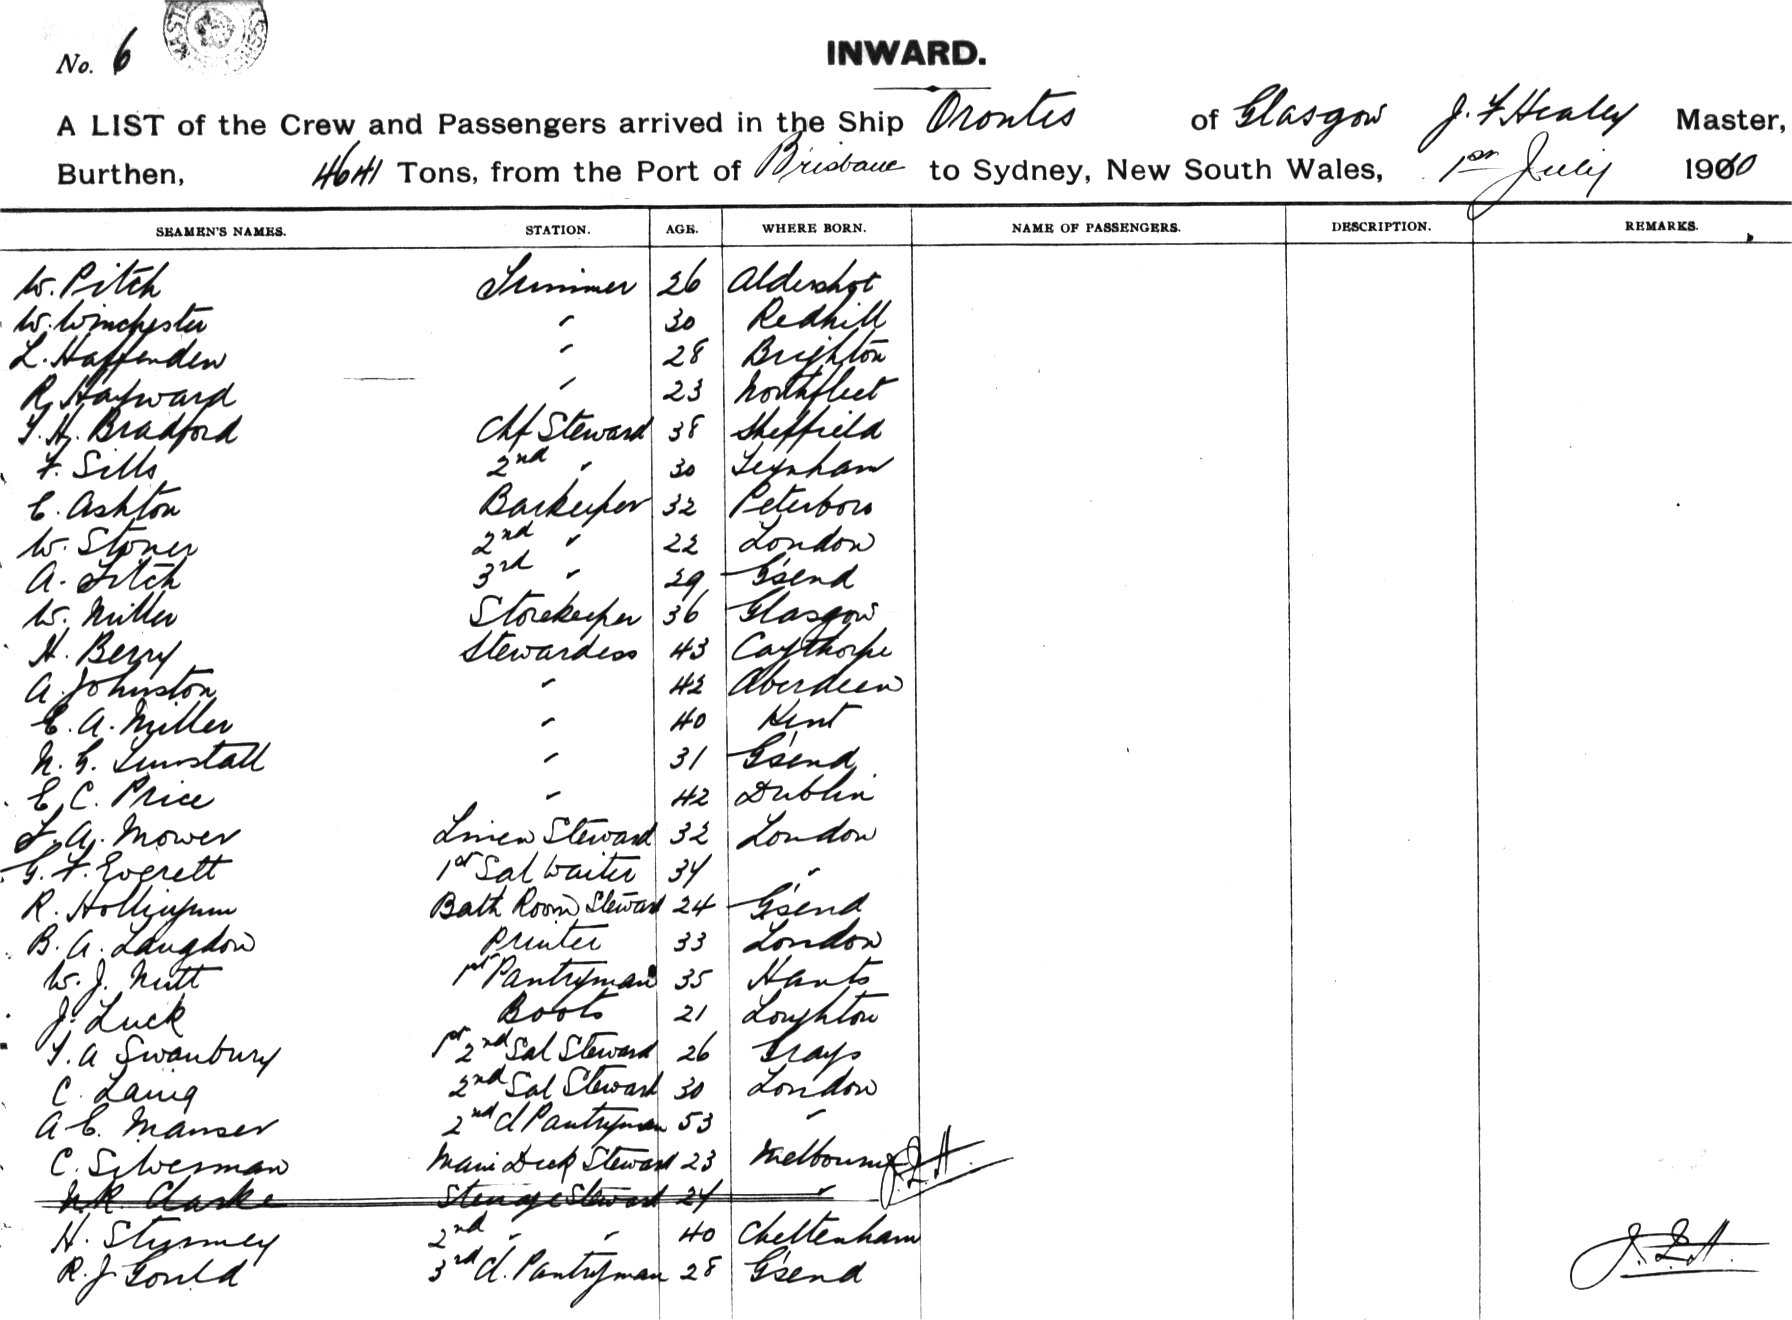 No. 6
INWARD.
A LIST of the Crew and Passengers arrived in the Ship Orontes of Glasgow J. F. Healey Master,
Burthen, 4641 Tons, from the Port of Brisbane to Sydney, New South Wales, 1st July 1910
SEAMEN'S NAMES. STATION. AGE. WHERE BORN. NAME OF PASSENGERS. DESCRIPTION. REMARKS.
W. Pitch Trimmer 26 Aldershot
W. Winchester " 30 Redhill
L. Haffenden " 28 Brighton
R. Hayward " 23 Northfleet
T. H. Bradford Chf Steward 38 Sheffield
F. Sills 2nd " 30
E. Ashton Barkeeper 32 Peterboro
W. Stoner 2nd " 22 London
A. Fitch 3rd " 29 G'send
W. Miller Storekeeper 36 Glasgow
H. Berry Stewardess 43 Caythorpe
A. Johnston " 42 Aberdeen
E. A. Miller " 40 Kent
N. G. Tunstall " 31 G'send
E. C. Price " 42 Dublin
F. A. Mower Linen Steward 32 London
G. F. Everett 1st Sal Waiter 34 "
R. Hollingum Bath Room Steward 24 G'send
B. A. Langdon Printer 33 London
W. J. Nutt 1st Pantryman 35 Hants
J. Luck Boots 21 Loughton
T. A Swanbury 1st 2nd Sal Steward 26 Grays
C. Laing 2nd Sal Steward 30 London
A. E. Manser 2nd cl Pantryman 53 "
C. Silverman Main Deck Steward 23 Melbourne J.F.H.
Clarke Steerage Steward 24 "
H. Stymey 2nd " " 40 Cheltenham
R. J Gould 3rd cl. Pantryman 28 G'send J.F.H.